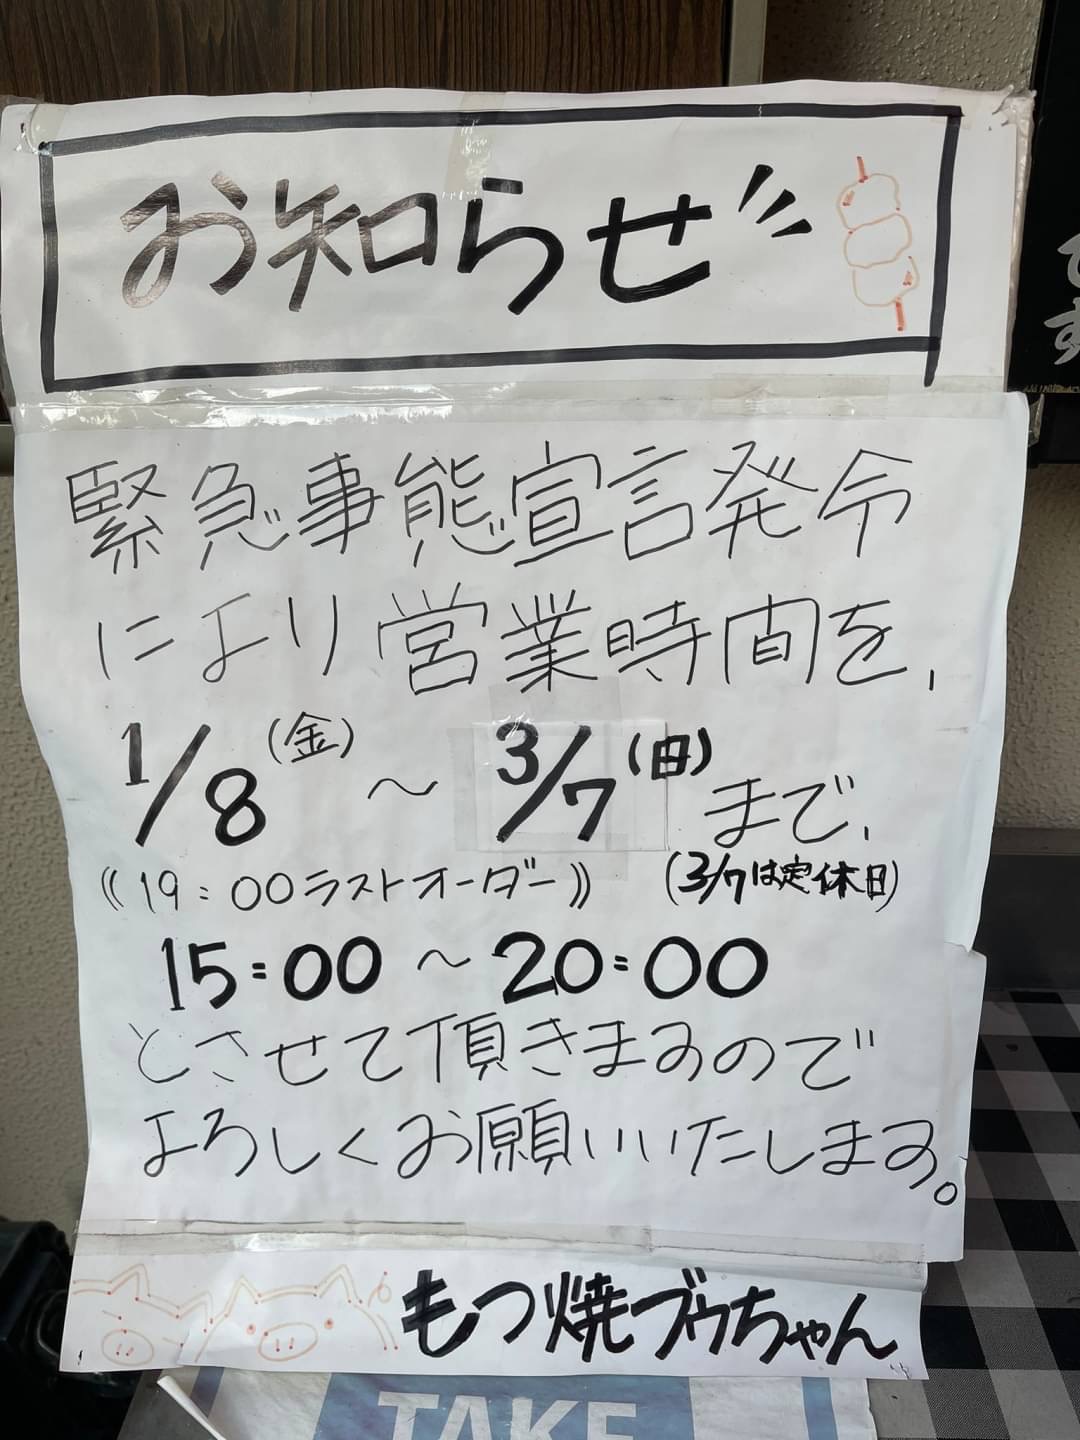 お知らせ
緊急事態宣言発令
により営業時間を、
1/8(金)～3/7(日)まで、
《19:00ラストオーダー》 (3/7は定休日)
15:00～20:00
とさせて頂きますので
よろしくお願いいたします。
もつ焼ブウちゃん
TAKE
です